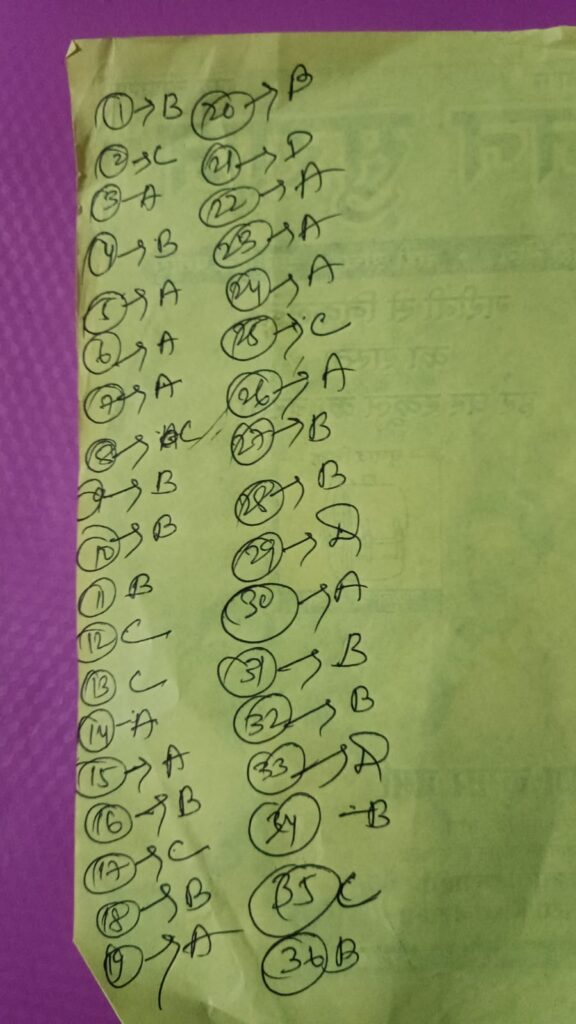 1 → B
2 → C
3 - A
4 → B
5 → A
6 → A
7 → A
8 → C
9 → B
10 → B
11 B
12 C
13 C
14 - A
15 → A
16 → B
17 → C
18 → B
19 → A
20 → B
21 → D
22 → A
23 → A
24 → A
25 → C
26 → A
27 → B
28 → B
29 →
30 → A
31 → B
32 → B
33 →
34 - B
35 C
36 B